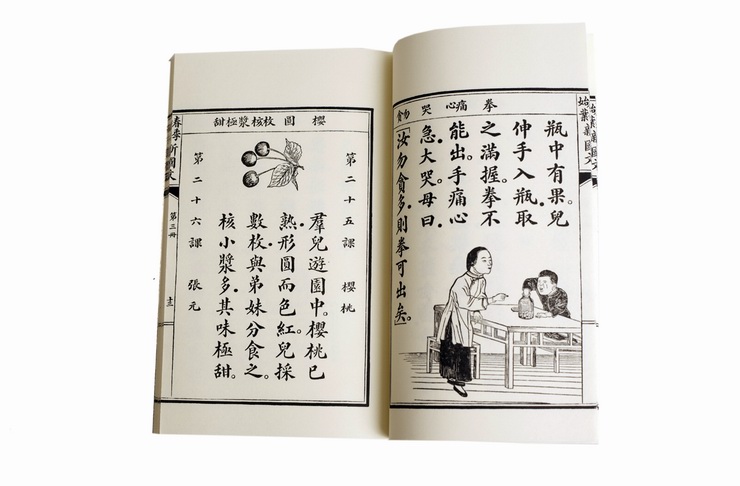 始業新國文
拳 痛心 哭 勿貪
瓶中有果。兒
伸手入瓶取
之滿握。拳不
能出。手痛心
急。大哭。母曰。
「汝勿貪多。則拳可出矣。」
櫻 圓 枚核漿極甜
第二十五課 櫻桃
羣兒遊園中。櫻桃已
熟。形圓而色紅。兒採
數枚。與弟妹分食之。
核小漿多。其味極甜。
第二十六課 張元
春季 新國文
第三冊
十三